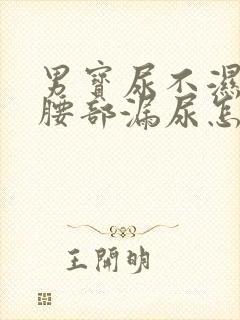 男寶尿不濕
腰部漏尿怎
王開明